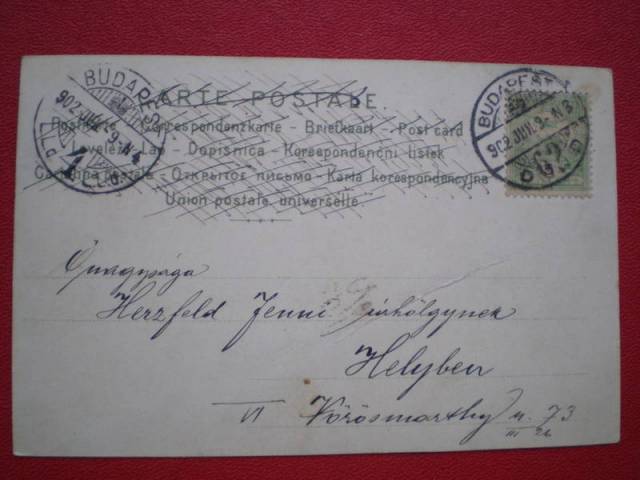 CARTE POSTALE.
Postkarte - Correspondenzkarte - Briefkaart - Post card
Levelező-Lap - Dopisnica - Korespondenční lístek
Cartolina postale - Открытое письмо - Karta korespondencyjna
Union postale universelle
BUDAPEST
902 JUN. 9. N 4
BUDAPEST
902 JUN. 9. N 3
Őnagysága
Herzfeld Jenni úrhölgynek
Helyben
VI Vörösmarthy u. 73
III 26